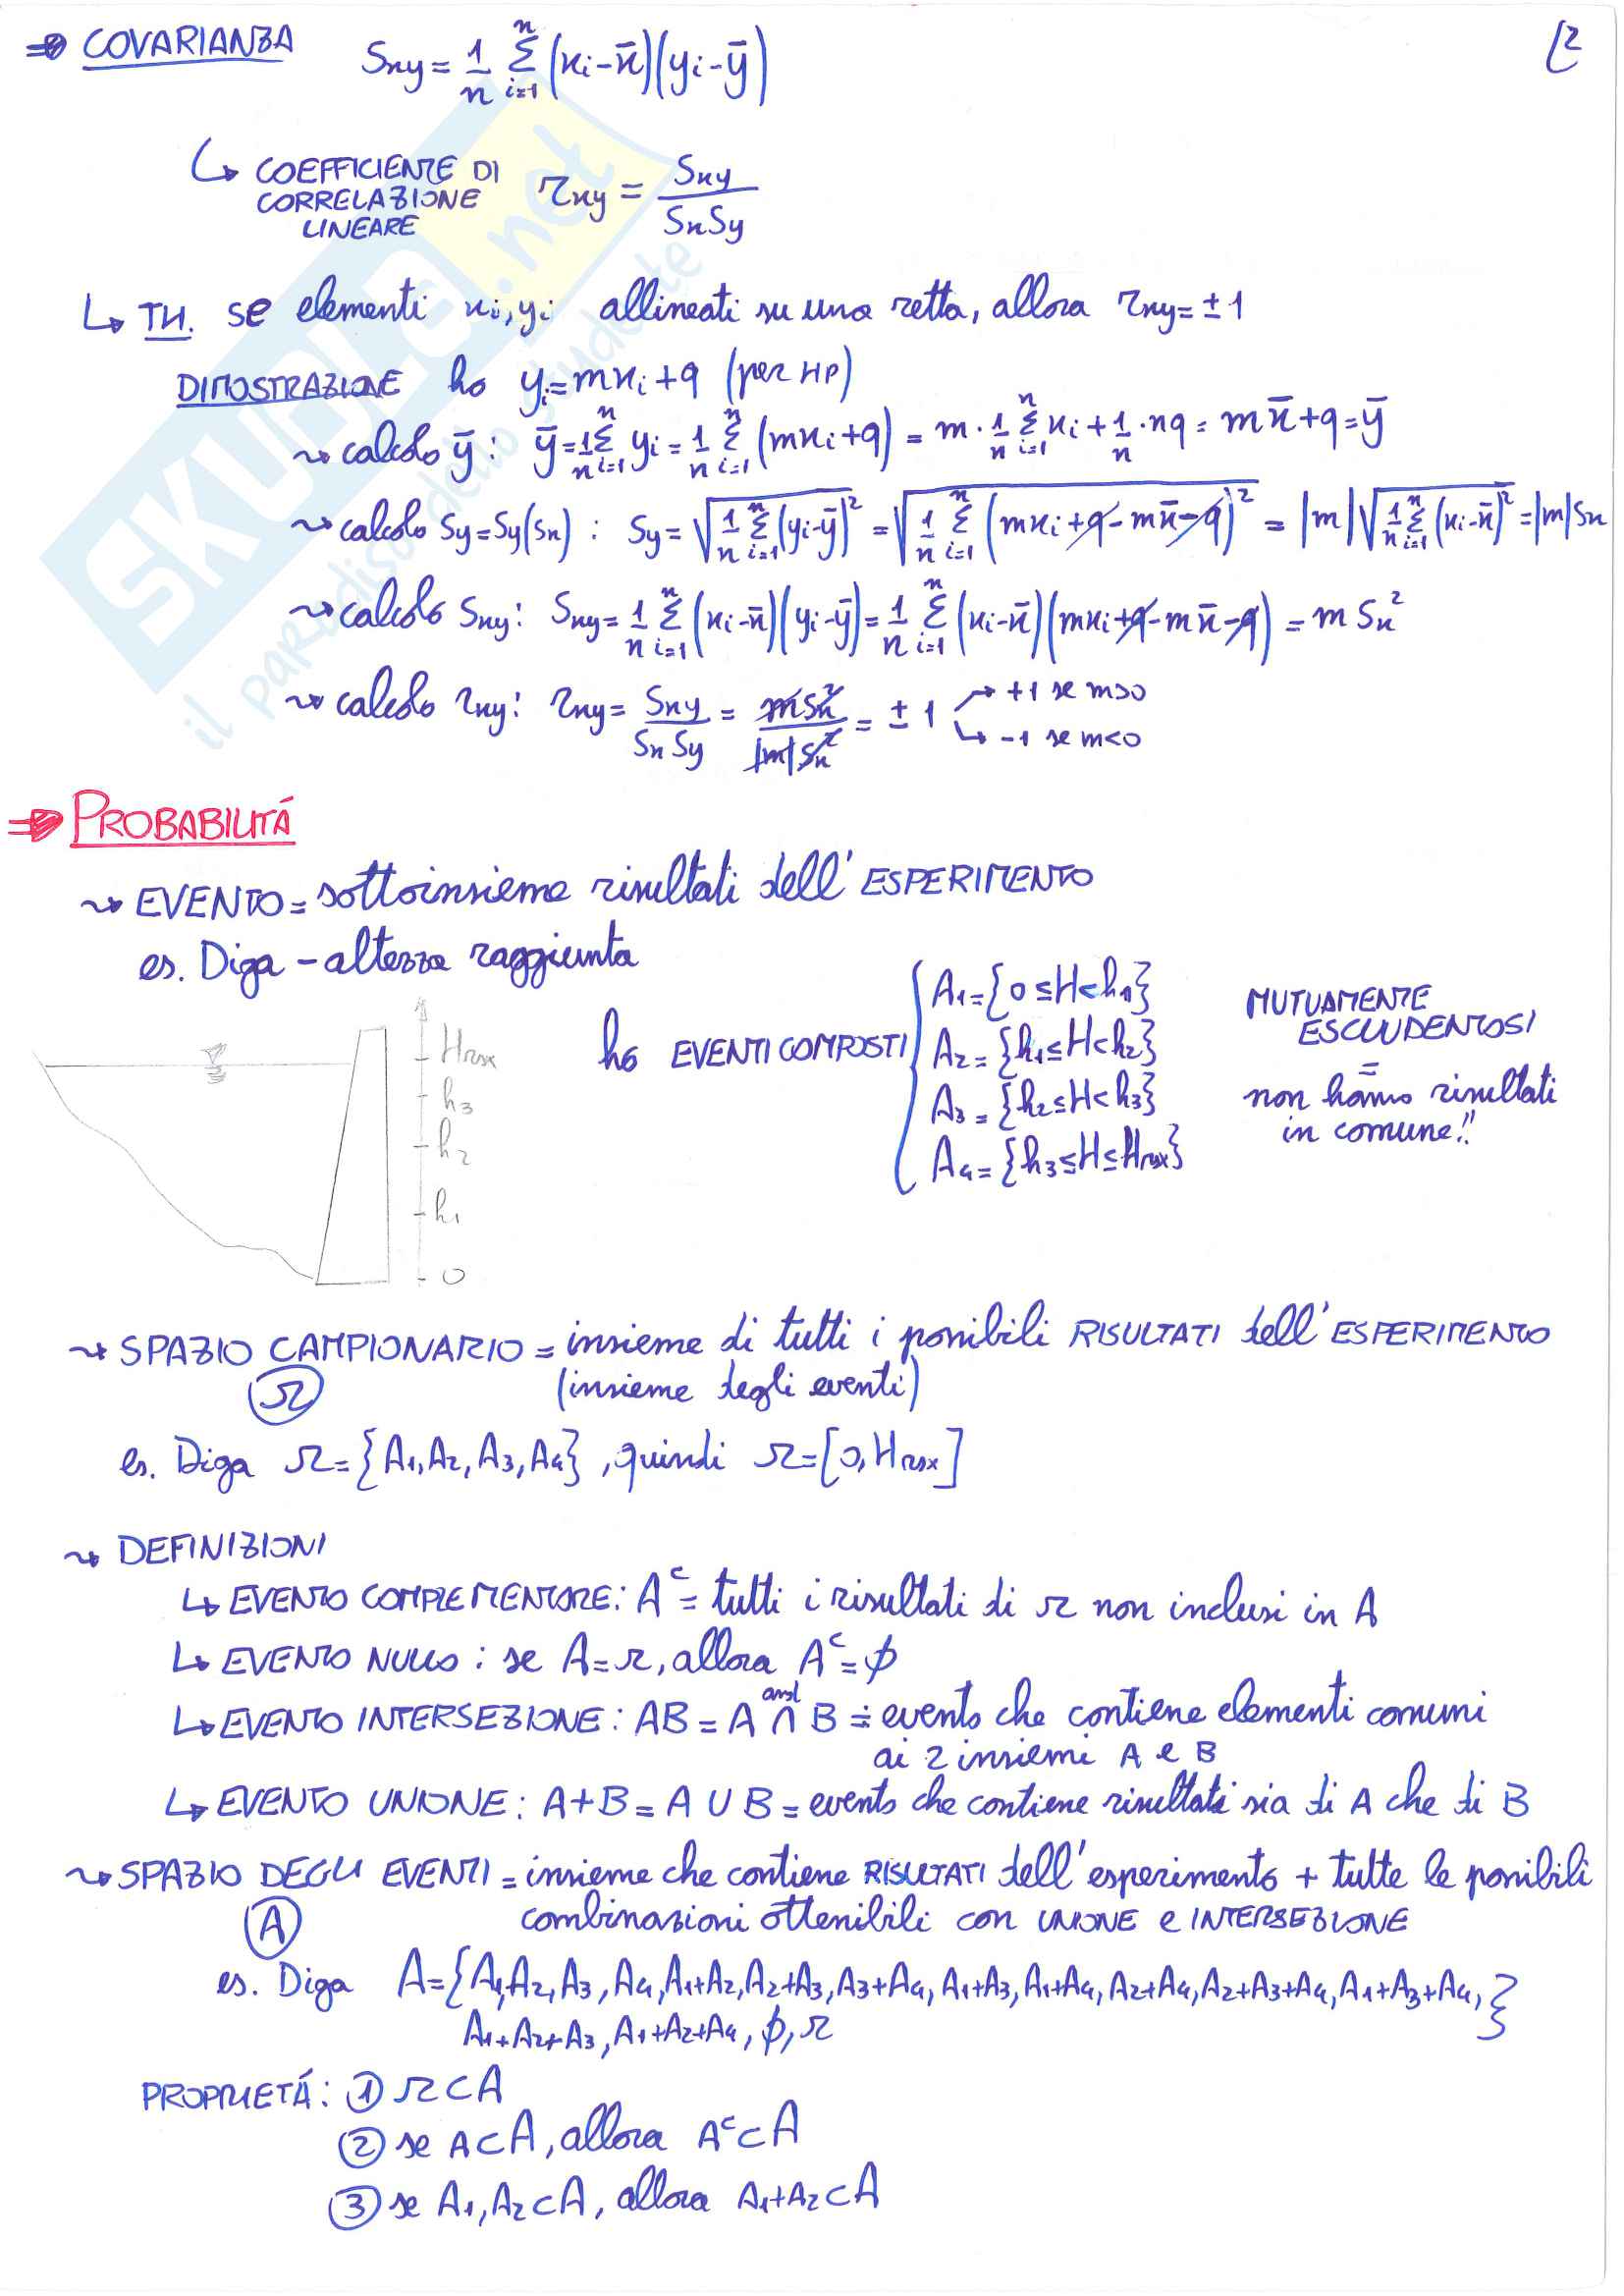 ⇒ COVARIANZA Sxy = 1/n Σ_{i=1}^{n} (xi - x̄)(yi - ȳ)
2
↳ COEFFICIENTE DI CORRELAZIONE LINEARE rxy = Sxy / (Sx Sy)
↳ TH. se elementi xi, yi allineati su una retta, allora rxy = ±1
DIMOSTRAZIONE ho yi = mxi + q (per HP)
⤳ calcolo ȳ: ȳ = 1/n Σ_{i=1}^{n} yi = 1/n Σ_{i=1}^{n} (mxi + q) = m · 1/n Σ_{i=1}^{n} xi + 1/n · nq = m x̄ + q = ȳ
⤳ calcolo Sy = Sy(Sx) : Sy = √(1/n Σ_{i=1}^{n} (yi - ȳ)²) = √(1/n Σ_{i=1}^{n} (mxi + q - m x̄ - q)²) = |m| √(1/n Σ_{i=1}^{n} (xi - x̄)²) = |m| Sx
⤳ calcolo Sxy: Sxy = 1/n Σ_{i=1}^{n} (xi - x̄)(yi - ȳ) = 1/n Σ_{i=1}^{n} (xi - x̄)(mxi + q - m x̄ - q) = m Sx²
⤳ calcolo rxy: rxy = Sxy / (Sx Sy) = m Sx² / (|m| Sx²) = ± 1 → +1 se m>0
↳ -1 se m<0
⇒ PROBABILITÁ
⤳ EVENTO = sottoinsieme risultati dell' ESPERIMENTO
es. Diga - altezza raggiunta
Hmax
h3
h2
h1
0
ho EVENTI COMPOSTI
A1 = {0 ≤ H < h1}
A2 = {h1 ≤ H < h2}
A3 = {h2 ≤ H < h3}
A4 = {h3 ≤ H ≤ Hmax}
MUTUAMENTE
ESCLUDENTOSI
=
non hanno risultati
in comune!!
⤳ SPAZIO CAMPIONARIO = insieme di tutti i possibili RISULTATI dell' ESPERIMENTO
Ω (insieme degli eventi)
es. Diga Ω = {A1, A2, A3, A4}, quindi Ω = [0, Hmax]
⤳ DEFINIZIONI
↳ EVENTO COMPLEMENTARE: Aᶜ = tutti i risultati di Ω non inclusi in A
↳ EVENTO NULLO : se A = Ω, allora Aᶜ = ϕ
↳ EVENTO INTERSEZIONE : AB = A ∩ B = evento che contiene elementi comuni
and
ai 2 insiemi A e B
↳ EVENTO UNIONE : A+B = A ∪ B = evento che contiene risultati sia di A che di B
⤳ SPAZIO DEGLI EVENTI = insieme che contiene RISULTATI dell' esperimento + tutte le possibili
A combinazioni ottenibili con UNIONE e INTERSEZIONE
es. Diga A = {A1, A2, A3, A4, A1+A2, A2+A3, A3+A4, A1+A3, A1+A4, A2+A4, A2+A3+A4, A1+A3+A4,
A1+A2+A3, A1+A2+A4, ϕ, Ω}
PROPRIETÁ : ① Ω ⊂ A
② se A ⊂ A, allora Aᶜ ⊂ A
③ se A1, A2 ⊂ A, allora A1+A2 ⊂ A
SKUOLA.net
il paradiso dello studente